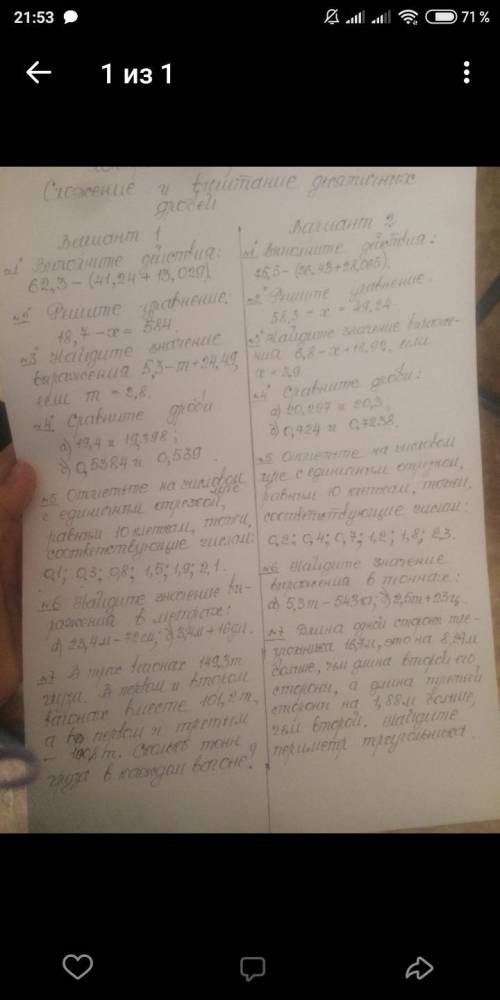 21:53
71 %
1 из 1
Сложение и вычитание десятичных
дробей
Вариант 1
№1° Выполните действия:
62,3 – (41,24 + 13,029).
№2° Решите уравнение:
18,7 – x = 5,84.
№3° Найдите значение
выражения 5,3 – m + 24,49,
если m = 2,8.
№4° Сравните дроби
а) 19,4 и 19,398;
б) 0,5384 и 0,539.
№5 Отметьте на числовом луче
с единичным отрезком,
равным 10 клеткам, точки,
соответствующие числам:
0,1; 0,3; 0,8; 1,5; 1,9; 2,1.
№6 Найдите значение вы-
ражения в метрах:
а) 23,4м – 82см; б) 3,4м + 16дм.
№7 В трех вагонах 149,3т
груза. В первом и втором
вагонах вместе 101,2т,
а в первом и третьем
т. Сколько тонн
груза в каждом вагоне?
Вариант 2
№1° Выполните действия:
№2° Решите уравнение.
58,3 – x = 49,24.
№3° Найдите значение выраже-
ния 6,8 – x + 18,92, если
x = 3,9
№4° Сравните дроби:
а) 20,297 и 20,3;
б) 0,724 и 0,7238.
№5 Отметьте на числовом
луче с единичным отрезком,
равным 10 клеткам, точки,
соответствующие числам:
0,2; 0,4; 0,7; 1,2; 1,8; 2,3.
№6 Найдите значение
выражения в тоннах:
а) 5,3т – 543кг; б) 2,5т + 23ц.
№7 Длина одной стороны тре-
угольника 16,7м, это на 8,24м
больше, чем длина второй его
стороны, а длина третьей
стороны на 1,88м больше,
чем второй. Найдите
периметр треугольника.